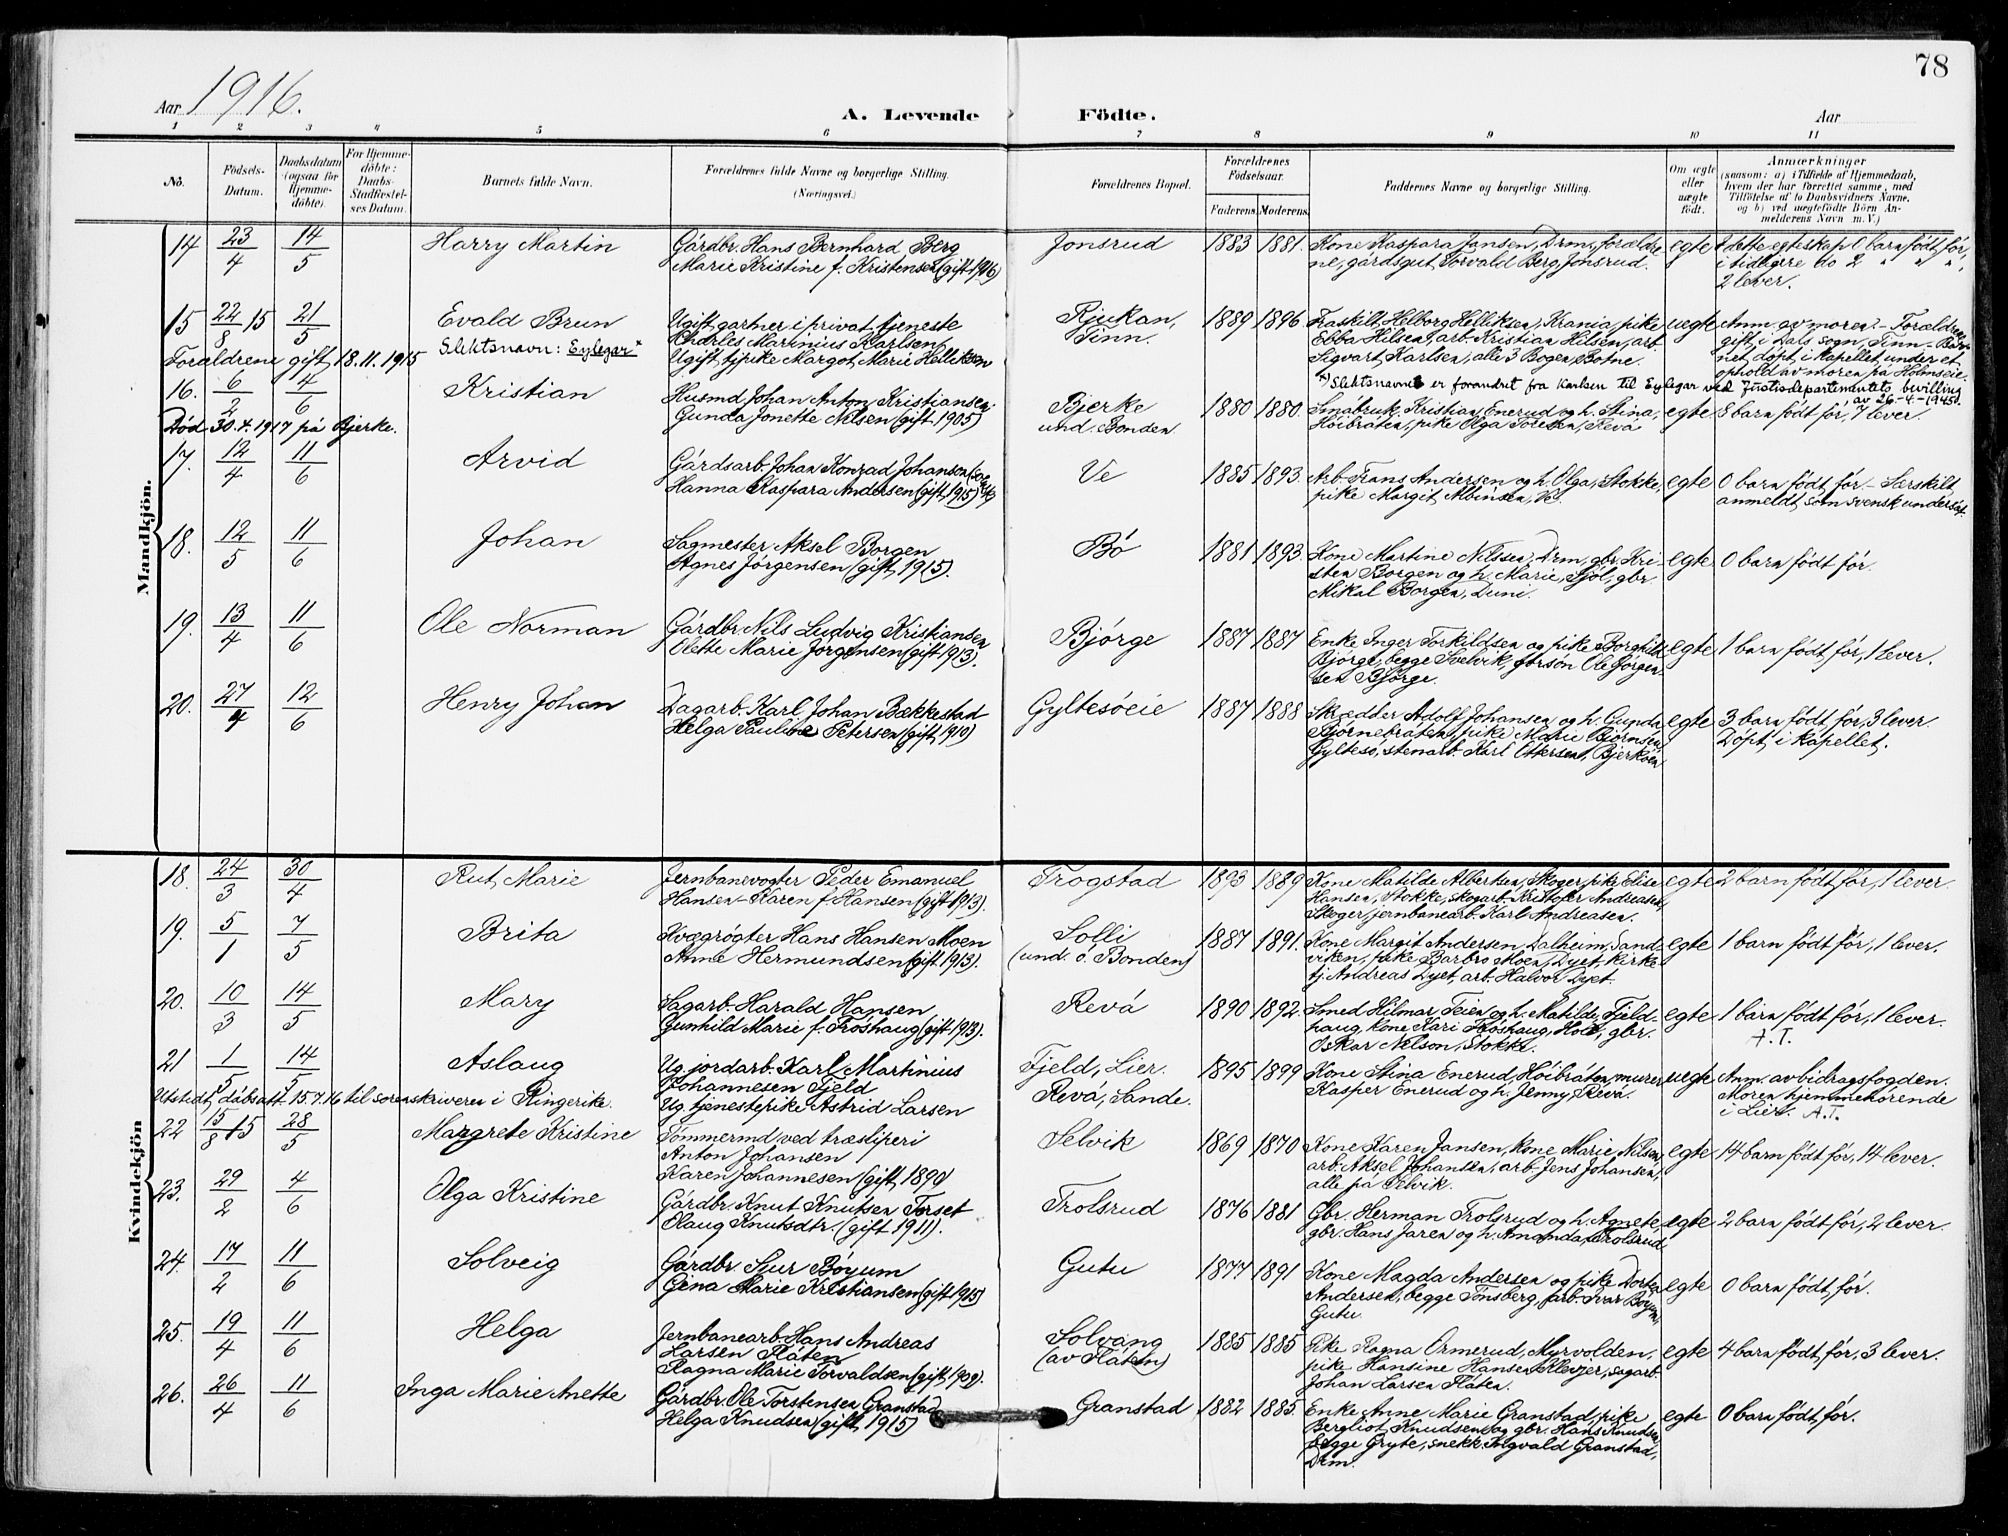 78
Aar 1916.
A. Levende Födte.
Aar
1 2 3 4 5 6 7 8 9 10 11
No.
Födsels-Datum.
Daabsdatum (ogsaa for Hjemmedöbte).
For Hjemmedöbte: Daabs-Stadfæstelses Datum.
Barnets fulde Navn.
Forældrenes fulde Navne og borgerlige Stilling. (Næringsvei.)
Forældrenes Bopæl.
Forældrenes Födselsaar.
Faderens. Moderens.
Faddernes Navne og borgerlige Stilling.
Om ægte eller uægte födt.
Anmærkninger
(saasom: a) i Tilfælde af Hjemmedaab, hvem der har forrettet samme, med Tilföielse af to Daabsvidners Navne, og b) ved uægtefödte Börn Anmelderens Navn m. V.)
Mandkjön.
14 23/4 14/5 Harry Martin
Gårdbr. Hans Bernhard Berg
Marie Kristine f. Kristensen (gift 1916)
Jonsrud 1883 1881.
Kone Kaspara Jansen, Drm, forældre-
ne, gårdsgut Torvald Berg, Jonsrud.
egte
I dette egteskap 0 barn födt för,
i tidligere do 2 " " ",
2 lever.
15 22/8 15 21/5 Evald Brun
Slektsnavn: Eylegar*
Forældrene gift 18.11.1915
Ugift gartner i privat tjeneste
Charles Marinius Karlsen
Ugift tj.pike Margot Marie Helliksen
Rjukan,
Tinn.
1889 1896
Fraskilt Helborg Helliksen, Krania, pike
Ebba Hilsen, arb. Kristian Hilsen, arb.
Sigvart Karlsen, alle 3 Bogen, Botne.
uegte
Anm. av moren. - Forældrene
gift i Dals sogn, Tinn - Bar-
net döpt i kapellet under et
ophold av moren på Holmseie.
*) Slektsnavnet er forandret fra Karlsen til Eylegar ved Justisdepartementets bevilling
av 26-4-1945).
16. 6/2 4/6 Kristian
Död 30.4.1917 på Bjerke.
Husmd Johan Anton Kristiansen
Gunda Jonette Nilsen (gift 1905)
Bjerke
und. Bonden
1880 1880.
Småbruk. Kristian Enerud og h. Stina,
Höibråten, pike Olga Toresen, Revå
egte 8 barn födt för, 7 lever.
17. 12/4 11/6 Arvid
Gårdsarb. Johan Konrad Johansen
Hanna Kaspara Andersen (gift 1915)
Ve 1885 1893.
Arb. Frans Andersen og h. Olga, Stokke,
pike Margit Albinsen, Ve.
egte
0 barn födt för - Særskilt
anmeldt som svensk undersåt.
18. 12/5 11/6 Johan
Sagmester Aksel Borgen
Agnes Jörgensen (gift 1915).
Bö 1881 1893.
Kone Martine Nilssen, Drm, gbr. Kri-
sten Borgen og h. Marie, Sjöl, gbr.
Mikal Borgen, Duni.
egte 0 barn födt för.
19. 13/4 11/6 Ole Norman
Gårdbr. Nils Ludvig Kristiansen
Olette Marie Jörgensen (gift 1913).
Björge 1887 1887
Enke Inger Torkildsen og pike Borghild
Björge, begge Svelvik, g.søn Ole Jörgen-
sen Björge.
egte 1 barn födt för, 1 lever.
20. 27/4 12/6 Henry Johan
Dagarb. Karl Johan Bækkestad
Helga Pauline Petersen (gift 1910)
Gyltesöeie 1887 1888
Skrædder Adolf Johansen og h. Gunda,
Björnebråten, pike Marie Björnsen,
Gyltesö, stenarb. Karl Ottersen, Bjerköen
egte
3 barn födt för, 3 lever.
Döpt i kapellet.
Kvindekjön
18. 24/3 30/4 Rut Marie
Jernbanevogter Peder Emanuel
Hansen - Karen f. Hansen (gift 1913).
Trogstad 1893 1889
Kone Matilde Albertsen, Skoger, pike Elise
Hansen, Stokke, skogarb. Kristofer Andreasen,
Skoger, jernbanearb. Karl Andreasen.
egte 2 barn födt för, 1 lever.
19. 5/1 7/5 Brita
Kvægrögter Hans Hansen Moen
Anne Hermundsen (gift 1913).
Solli
(und. ö. Bonden)
1887 1891.
Kone Margit Andersen, Dalheim, Sand-
viken, pike Barbro Moen, Dyet, kirke-
tj. Andreas Dyet, arb. Halvor Dyet.
egte 1 barn födt för, 1 lever.
20. 10/3 14/5 Mary
Sagarb. Harald Hansen
Gunhild Marie f. Fröshaug (gift 1913).
Revå 1890 1892.
Smed Hilmar Teien og h. Matilde, Fjeld-
haug, kone Kari Fröshaug, Holt, gbr.
Oskar Nelson, Stokke.
egte 1 barn födt för, 1 lever.
A.T.
21 1/5 14/5 Aslaug
Utstedt dåbsatt. 15.7.16 til sorenskriveren i Ringerike.
Ug. jordarb. Karl Martinius
Johannesen Fjeld
Ug. tjenestepike Astrid Larsen
Fjeld, Lier.
Revå, Sande.
1895 1899
Kone Stina Enerud, Höibråten, murer
Kasper Enerud og h. Jenny, Revå.
uegte
Anm. av bidragsfogden.
Moren hjemmehörende
i Lier. A.T.
22 15/8 15 28/5 Margrete Kristine
Tömmermd ved træsliperi
Anton Johansen
Karen Johannesen (gift 1890)
Selvik 1869 1870
Kone Karen Jansen, kone Marie Nilsen,
arb. Aksel Johansen, arb. Jens Johansen,
alle på Selvik.
egte 14 barn födt för, 14 lever.
23. 29/2 4/6 Olga Kristine
Gårdbr. Knut Knutsen Torset
Olaug Knutsdtr. (gift 1911).
Trolsrud 1876 1881
Gbr. Herman Trolsrud og h. Agnete,
gbr. Hans Jaren og h. Amanda, Trolsrud
egte 2 barn födt för, 2 lever.
24. 17/2 11/6 Solveig
Gårdbr. Sjur Böyum
Gina Marie Kristiansen (gift 1915)
Gutu 1877 1891
Kone Magda Andersen og pike Dortea
Andersen, begge Tönsberg, farb. Ivar Böyum,
Gutu.
egte 0 barn födt för.
25. 19/4 11/6 Helga
Jernbanearb. Hans Andreas
Larsen Flåten
Ragna Marie Torvaldsen (gift 1909).
Solvang
(av Flåten)
1885 1885
Pike Ragna Ormerud, Myrvolden,
pike Hansine Hansen, Klevjer, sagarb.
Johan Larsen Flåten.
egte 4 barn födt för, 3 lever.
26. 26/4 11/6 Inga Marie Anette
Gårdbr. Ole Torstensen Granstad
Helga Knudsen (gift 1915)
Granstad 1882 1885.
Enke Anne Marie Granstad, pike
Bergliot Knudsen og gbr. Hans Knudsen,
begge Gryte, snekk. Tolgvald Granstad,
Drm.
egte 0 barn födt för.